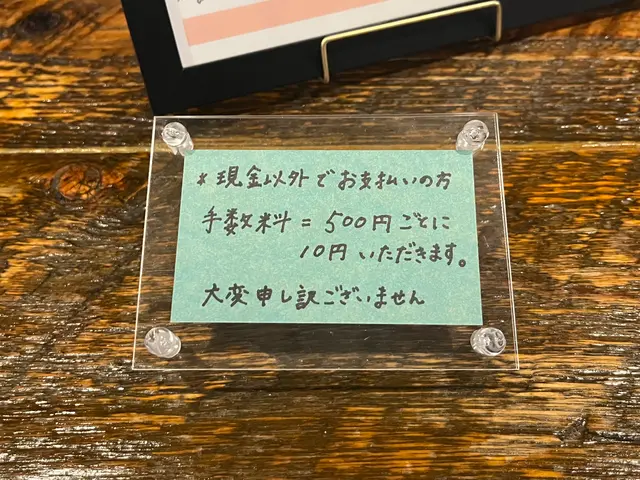 * 現金以外でお支払いの方
手数料 = 500円ごとに
10円いただきます。
大変申し訳ございません